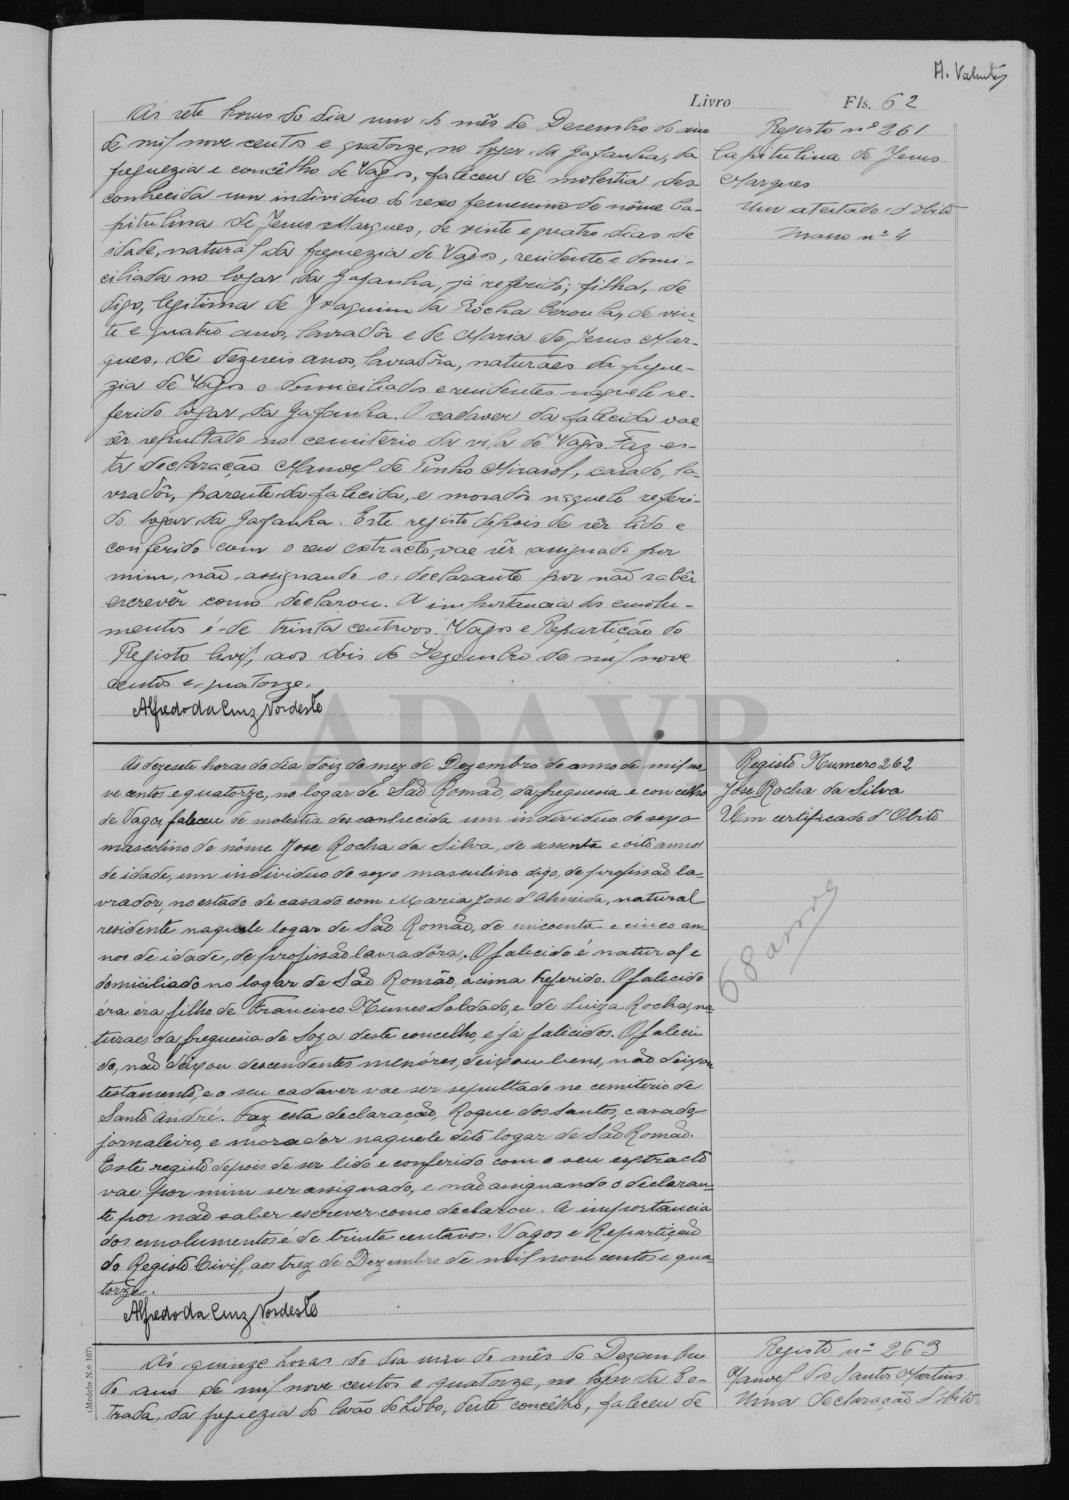 A. Valentes
Livro
Fls. 62
Ás sete horas do dia um do mês de Dezembro do ano
de mil nove centos e quatorze, no logar da Gafanha, da
freguezia e concêlho de Vagos, faleceu de molestia des
conhecida um individuo do sexo femenino de nôme Ca-
pitulina de Jesus Marques, de vinte e quatro dias de
idade, natural da freguezia de Vagos, residente e domi-
ciliada no logar da Gafanha, já referido; filha, de
digo, legitima de Joaquim da Rocha Ceroula, de vin-
te e quatro anos, lavradôr e de Maria de Jesus Mar-
ques, de dezeseis anos, lavradôra, naturaes da fregue-
zia de Vagos e domiciliados e residentes naquele re-
ferido logar da Gafanha. O cadaver da falecida vae
sêr sepultado no cemiterio da vila de Vagos. Faz es-
ta declaração Manoel de Pinho Mirasol, casado, la-
vradôr, parente da falecida, e moradôr naquele referi-
do logar da Gafanha. Este registo depois de sêr lido e
conferido com o seu extracto, vae sêr assignado por
mim, não assignando o declarante por não sabêr
escrevêr como declarou. A importancia dos emolu-
mentos é de trinta centavos. Vagos e Repartição do
Registo Civil, aos dois de Dezembro de mil nove
centos e quatorze.
Alfredo da Cruz Nordeste
Registo nº 261
Capitulina de Jesus
Marques
Um atestado d'obito
Masso nº 4
As dezesete horas do dia doiz do mez de Dezembro do anno de mil no
ve centos e quatorze, no logar de São Romão, da freguesia e concelho
de Vagos, faleceu de molestia desconhecida um individuo do sexo
mascolino de nôme Jose Rocha da Silva, de sessenta e oito annos
de idade, um individuo do sexo masculino digo, de profissão la-
vrador, no estado de casado com Maria Jose d'Almeida, natural
residente naquele logar de São Romão, de cincoenta e cinco an
nos de idade, de profissão lavradôra. O falecido é natural e
domiciliado no logar de São Romão, acima referido. O falecido
éra éra filho de Francisco Nunes Saldado, e de Luiza Rocha, na
turaes da freguesia de Soza deste concelho, e já falecidos. O faleci
do, não deixou descendentes menóres, deixou bens, não deixou
testamento, e o seu cadaver vae ser sepultado no cemiterio de
Santo André. Faz esta declaração, Roque dos Santos, casado,
jornaleiro, e morador naquele dito logar de São Romão.
Este registo depois de ser lido e conferido com o seu extracto
vae por mim ser assignado, e não assignando o declaran-
te por não saber escrever como declarou. A importancia
dos emolumentos é de trinta centavos. Vagos e Repartição
do Registo Civil, aos trez de Dezembro de mil nove centos e qua
torze.
Alfredo da Cruz Nordeste
Registo Numero 262
Jose Rocha da Silva
Um certificado d'Obito
68 annos
Ás quinze horas do dia um do mês de Dezembro
do ano de mil nove centos e quatorze, no logar da Es-
trada, da freguezia do Covão do Lobo, deste concêlho, faleceu de
Registo nº 263
Manoel dos Santos Martins
Uma declaração d'obito
(Modêlo N.º 107)
ADAVR